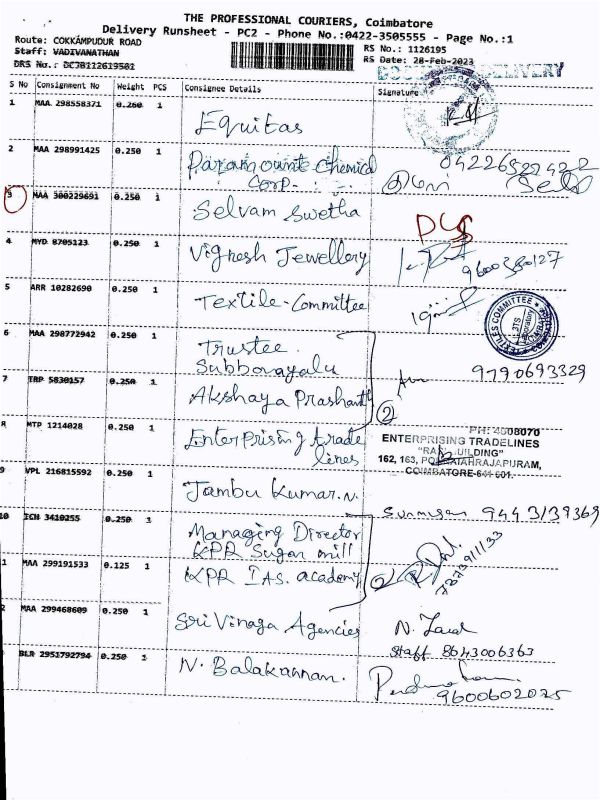 THE PROFESSIONAL COURIERS, Coimbatore
Delivery Runsheet - PC2 - Phone No.:0422-3505555 - Page No.:1
Route: COKKAMPUDUR ROAD
RS No.: 1126195
Staff: VADIVANATHAN
RS Date: 28-Feb-2023
DRS No.: DC3B112619501
DELIVERY
S No Consignment No Weight PCS Consignee Details Signature
1 MAA 298558371 0.260 1 Equitas
2 MAA 298991425 0.250 1 Paramount chemical Corp. 04226522422
3 MAA 300229691 0.250 1 Selvam Swetha
4 MYD 8705123 0.250 1 Vignesh Jewellery 9600380127
5 ARR 10282690 0.250 1 Textile-Committee
TEXTILES COMMITTEE
6 MAA 298772942 0.250 1 Trustee Subborayalu 9790693329
7 TRP 5830157 0.250 1 Akshaya Prashanth 2
8 MTP 1214028 0.250 1 Enterprising trade lines
PH: 4008070
ENTERPRISING TRADELINES
162, 163,
COIMBATORE-641 001.
9 VPL 216815592 0.250 1 Jambu Kumar.N. 9443139369
10 ICH 3410255 0.250 1 Managing Director KPR Sugar mill
1 MAA 299191533 0.125 1 KPR IAS. academy 2
2 MAA 299468609 0.250 1 Sri Vinaga Agencies
Staff 8643006363
BLR 2951792794 0.250 1 N. Balakannan. 9600602025